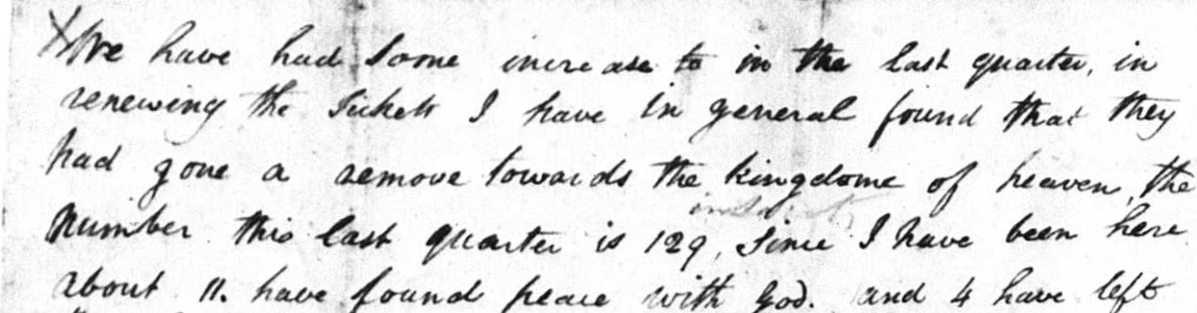 We have had some increase to in the last quarter, in
renewing the Tickets I have in general found that they
had gone a remove towards the kingdome of heaven, the
Number this last quarter is 129, Since I have been here
about 11. have found peace with God. and 4 have left